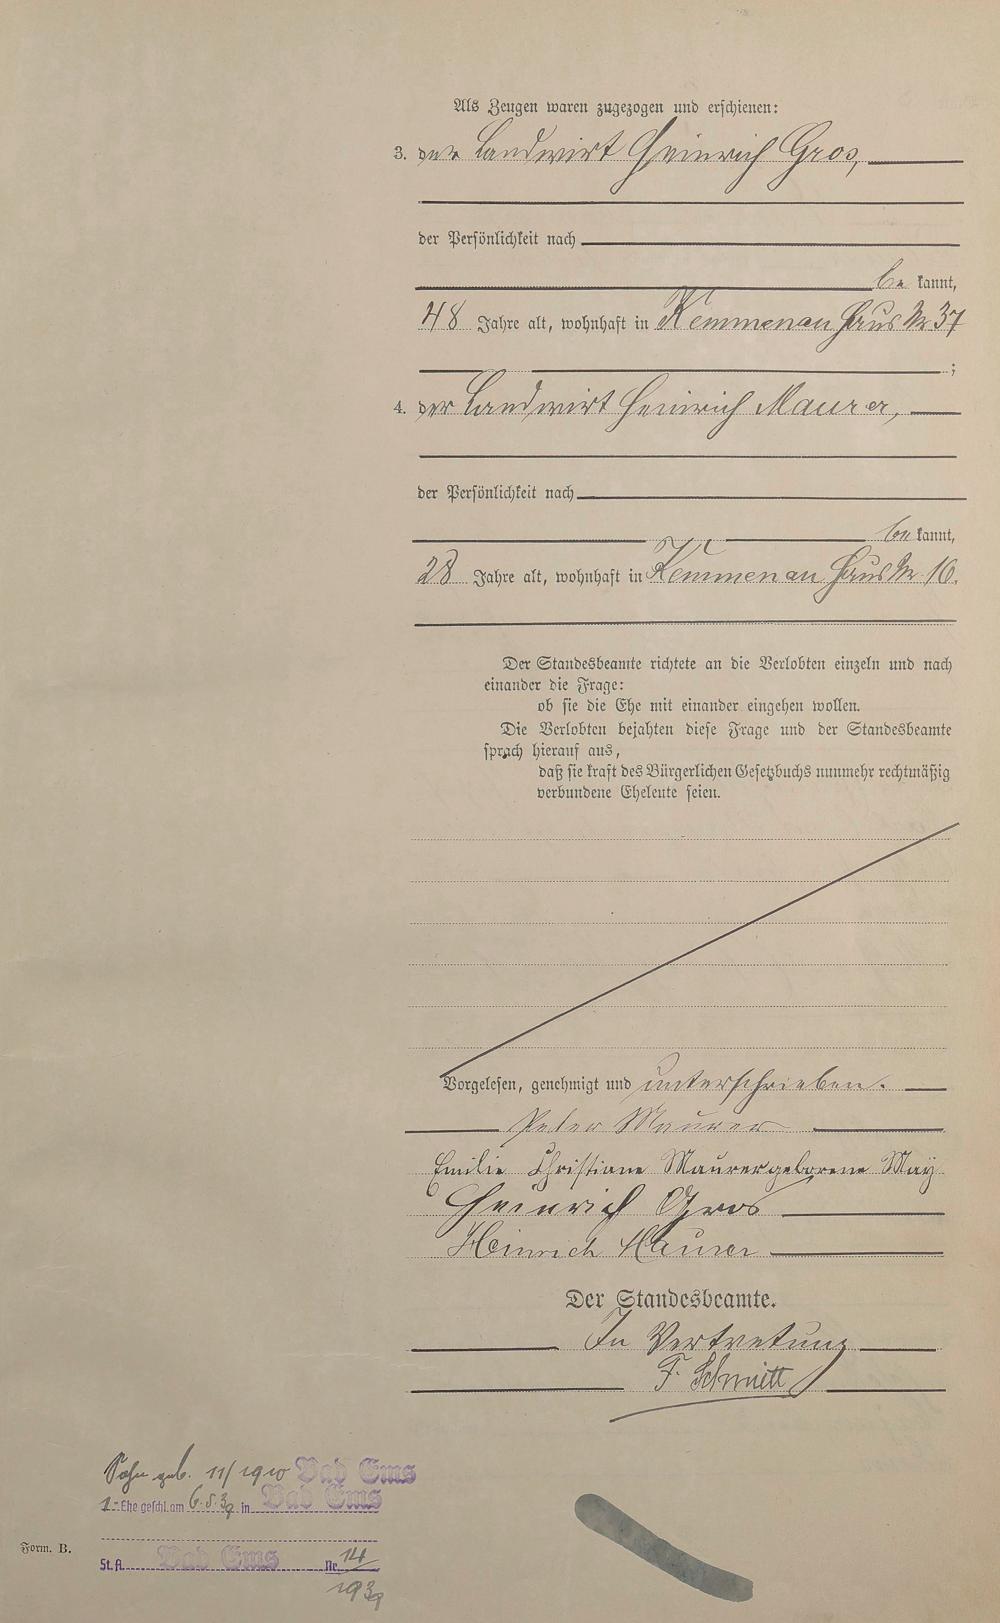 Als Zeugen waren zugezogen und erschienen:
3. der Landwirt Heinrich Gros,
der Persönlichkeit nach
be kannt,
48 Jahre alt, wohnhaft in Kemmenau Haus Nr 37
;
4. der Landwirt Heinrich Maurer,
der Persönlichkeit nach
be kannt,
28 Jahre alt, wohnhaft in Kemmenau Haus Nr 16.
Der Standesbeamte richtete an die Verlobten einzeln und nach
einander die Frage:
ob sie die Ehe mit einander eingehen wollen.
Die Verlobten bejahten diese Frage und der Standesbeamte
sprach hierauf aus,
daß sie kraft des Bürgerlichen Gesetzbuchs nunmehr rechtmäßig
verbundene Eheleute seien.
Vorgelesen, genehmigt und unterschrieben.
Peter Maurer
Emilie Christiane Maurer geborene May
Heinrich Gros
Heinrich Maurer
Der Standesbeamte.
In Vertretung
F. Schmitt
Sohn geb. 11/1910 Bad Ems
1. Ehe geschl. am 6.5.39 in Bad Ems
Form. B.
St. A. Bad Ems Nr. 14/
1939